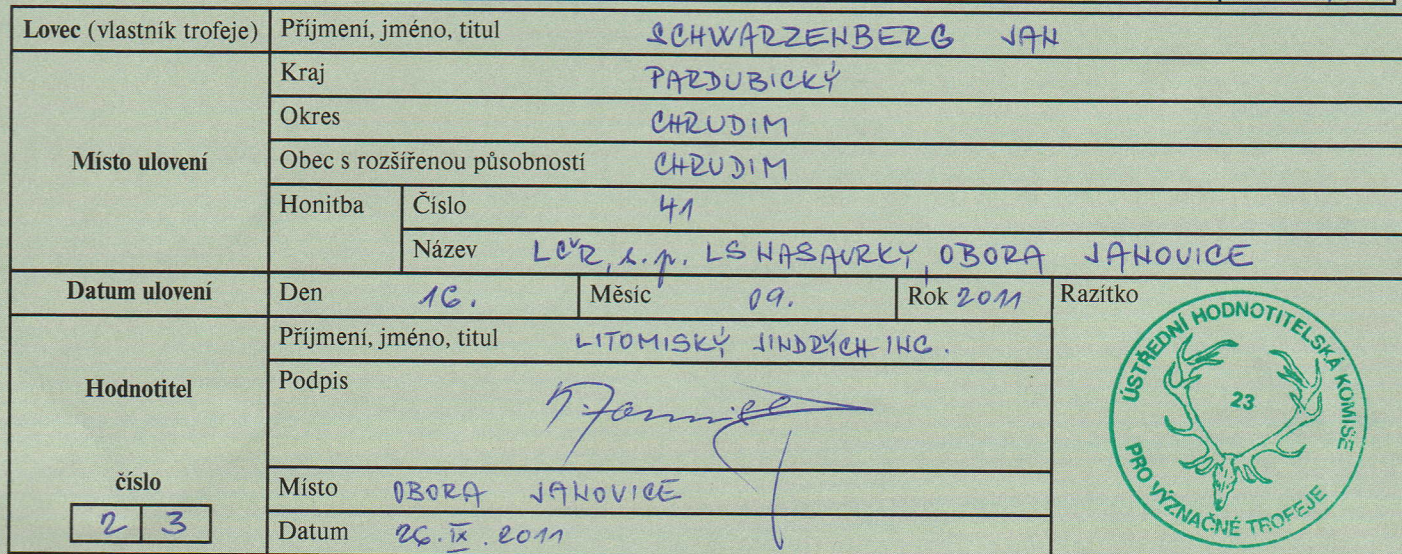 Lovec (vlastník trofeje) Příjmení, jméno, titul SCHWARZENBERG JAN
Místo ulovení
Kraj PARDUBICKÝ
Okres CHRUDIM
Obec s rozšířenou působností CHRUDIM
Honitba Číslo 41
Název LČR, s.p. LS NASAVRKY, OBORA JANOVICE
Datum ulovení Den 16. Měsíc 09. Rok 2011 Razítko
Hodnotitel
Příjmení, jméno, titul LITOMISKÝ JINDŘICH ING.
Podpis
číslo
2 3
Místo OBORA JANOVICE
Datum 26. IX. 2011
ÚSTŘEDNÍ HODNOTITELSKÁ KOMISE
23
PRO VÝZNAČNÉ TROFEJE